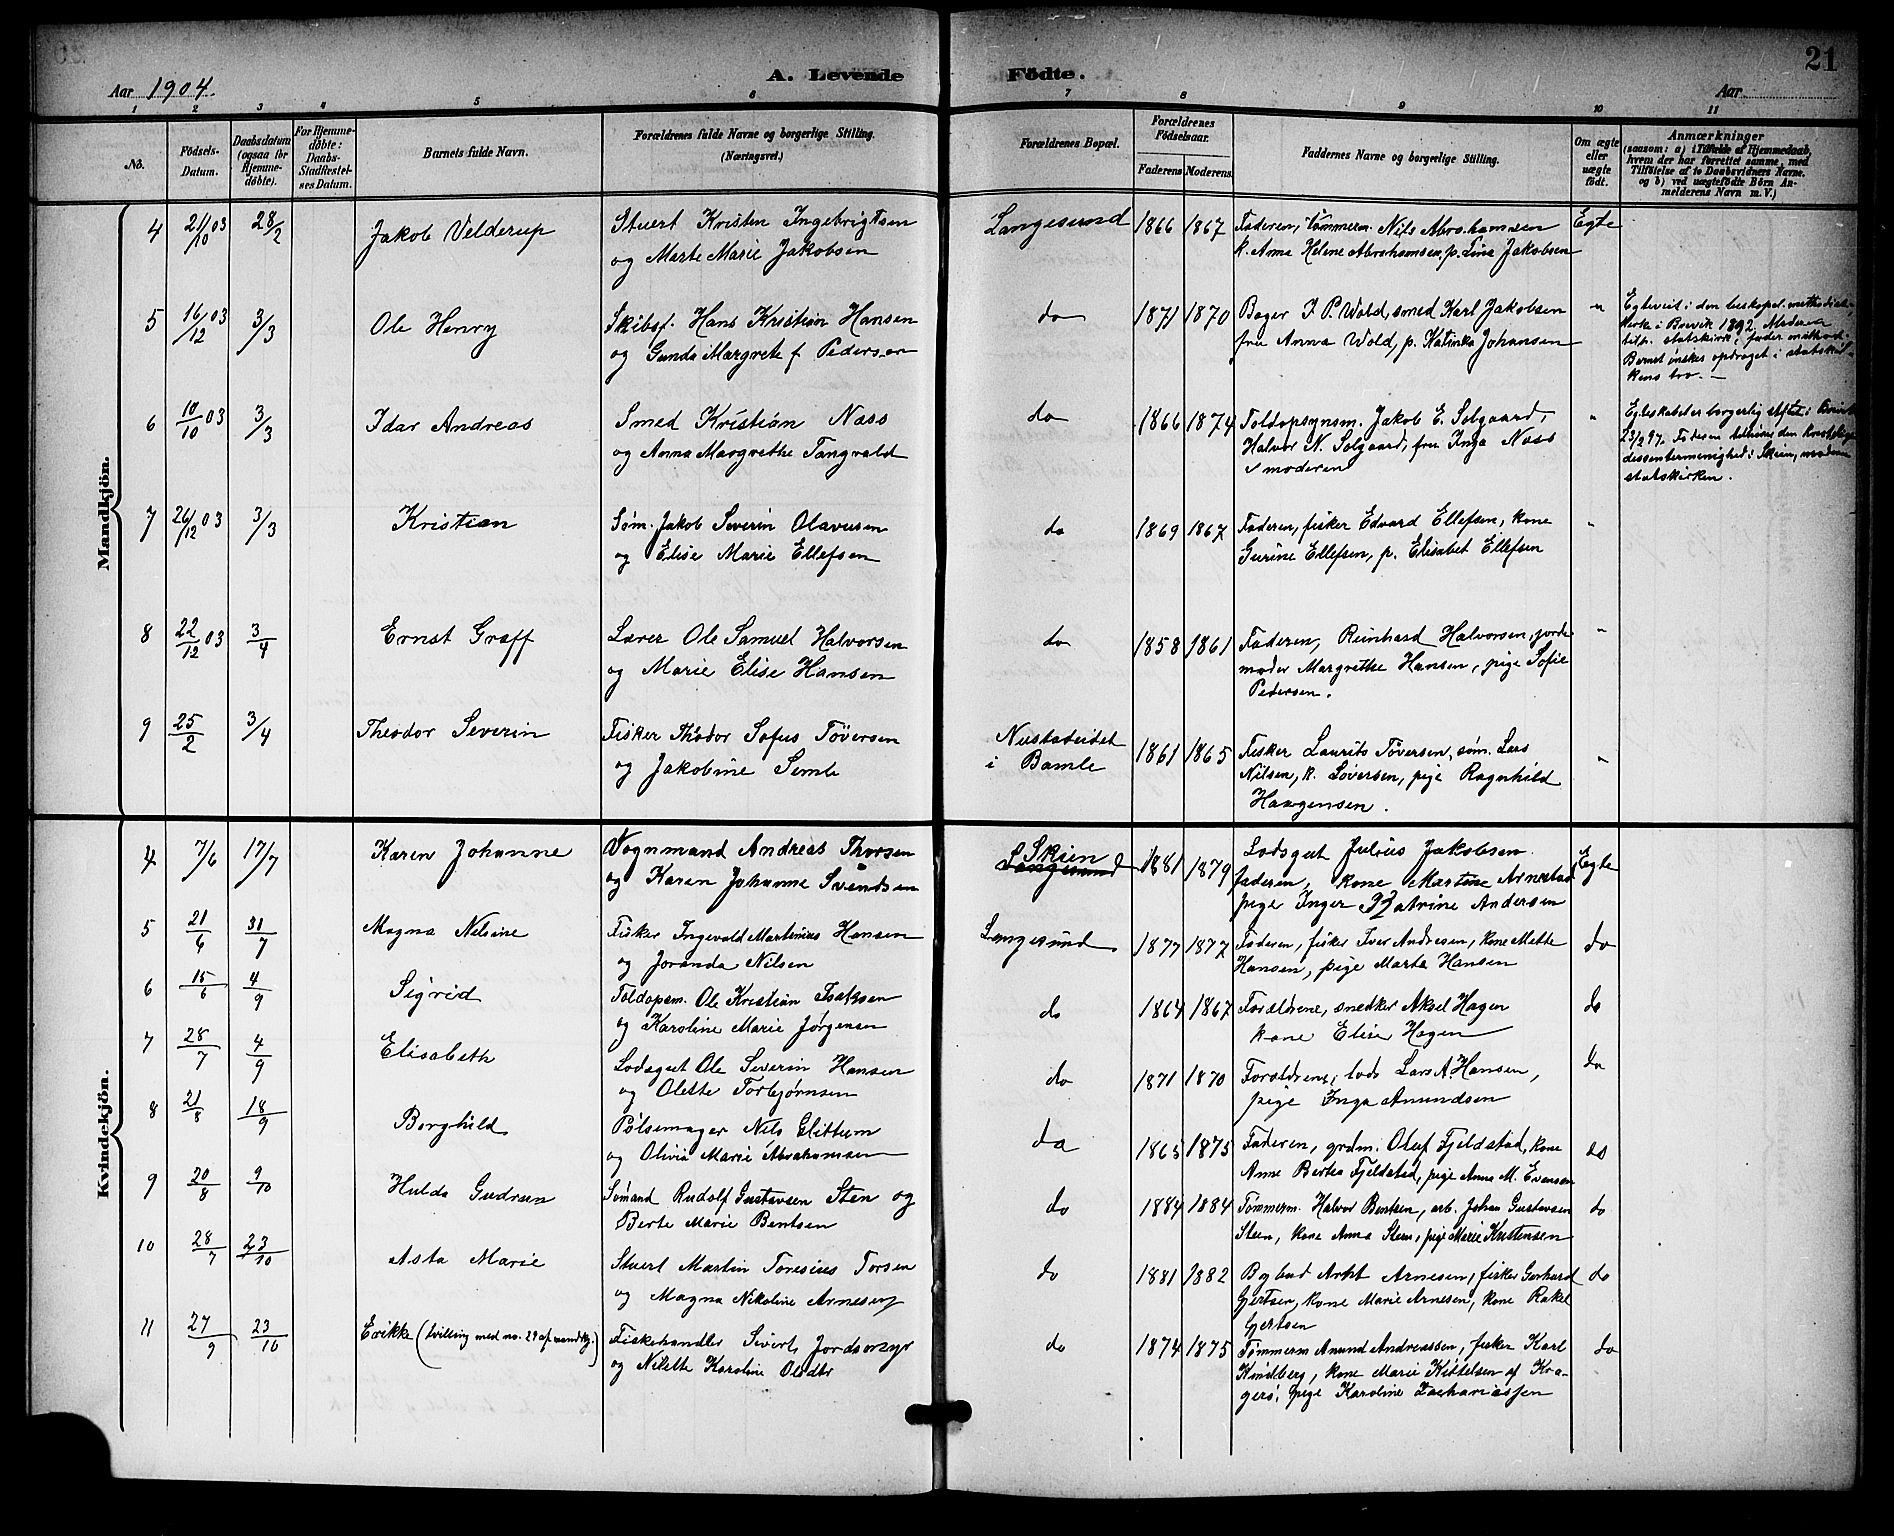 20
A. Levende Födte.
21
Aar 1904.
Aar
1 2 3 4 5 6 7 8 9 10 11
No.
Födsels-Datum.
Daabsdatum (ogsaa for Hjemmedöbte).
For Hjemmedöbte: Daabs-Stadfæstelses Datum.
Barnets fulde Navn.
Forældrenes fulde Navne og borgerlige Stilling.
(Næringsvei.)
Forældrenes Bopæl.
Forældrenes Födselsaar.
Faderens Moderens
Faddernes Navne og borgerlige Stilling.
Om ægte eller uægte födt.
Anmærkninger
(saasom: a) i Tilfælde af Hjemmedaab,
hvem der har forrettet samme, med
Tilföielse af to Daabsvidners Navne.
og b) ved uægtefödte Börn An-
melderens Navn m. V.)
Mandkjön.
4 21/10 03 28/2 Jakob Velderup Stuert Kristen Ingebrigtsen Langesund 1866 1867 Faderen, tömmerm. Nils Abrahamsen Egte
og Marte Marie Jakobsen k. Anna Helene Abrahamsen, p. Lina Jakobsen
5 16/12 03 3/3 Ole Henry Skibsf. Hans Kristian Hansen do 1871 1870 Bager I. P. Wold, smed Karl Jakobsen "
og Gunda Margrete f. Pedersen fru Anna Wold, p. Katinka Johansen
Egteviet i den biskopel. methodist-
kirke i Brevik 1892. Moderen
tilh. statskirk, fader method.
Barnet ønskes opdraget i statskir-
kens tro. —
6 10/10 03 3/3 Idar Andreas Smed Kristian Nass do 1866 1874 Toldopsynsm. Jakob E. Solgaard "
og Anna Margrethe Tangvald Halvor N. Solgaard, fru Inga Nass
moderen
Egteskabet er borgerlig stiftet i
23/2 97. Faderen tilhører den kristelige
dissentermenighed i Skien, moderen
statskirken.
7 26/12 03 3/3 Kristian Søm. Jakob Severin Olavesen do 1869 1867 Faderen, fisker Edvard Ellefsen, kone "
og Elise Marie Ellefsen Gurine Ellefsen, p. Elisabet Ellefsen
8 22/12 03 3/4 Ernst Graff Lærer Ole Samuel Halvorsen do 1858 1861 Faderen, Reinhard Halvorsen, jorde "
og Marie Elise Hansen moder Margrethe Hansen, pige Sofie
Pedersen.
9 25/2 3/4 Theodor Severin Fisker Theodor Sofus Tøversen Nustadeidet 1861 1865 Fisker Laurits Tøversen, søm. Lars "
og Jakobine Semb i Bamle Nilsen, k. Løversen, pige Ragnhild
Haagensen.
Kvindekjön.
4 7/6 17/7 Karen Johanne Vognmand Andreas Thorsen Skien 1881 1879 Lodsgut Julius Jakobsen Egte
og Karen Johanne Svendsen Langesund faderen, kone Martine Arnesen
pige Inger Katrine Andersen
5 21/6 31/7 Magna Nilsine Fisker Ingevald Martinius Hansen Langesund 1877 1877 Faderen, fisker Iver Andresen, kone Mette do
og Joranda Nilsen Hansen, pige Marta Hansen
6 15/6 4/9 Sigrid Toldopsm. Ole Kristian Isaksen do 1864 1867 Forældrene, snedker Aksel Hagen do
og Karoline Marie Jørgensen kone Elise Hagen
7 28/7 4/9 Elisabeth Lodsgut Ole Severin Hansen do 1871 1870 Forældrene, lods Lars A. Hansen, do
og Olette Torbjørnsen pige Inga Amundsen
8 21/8 18/9 Borghild Pølsemager Nils Glittum do 1865 1875 Faderen, grdm. Oluf Fjeldstad, kone do
og Olivia Marie Abrahamsen Anne Bertea Fjeldstad, pige Anne M. Evensen
9 20/8 9/10 Hulda Gudrun Sømand Rudolf Gustavsen Sten og do 1884 1884 Tømmerm. Halvor Bentsen, arb. Johan Gustavsen do
Berte Marie Bentsen Steen, kone Anna Steen, pige Marie Kristensen
10 28/7 23/10 Asta Marie Stuert Martin Toresius Torsen do 1881 1882 Bybud Arnt Arnesen, fisker Gerhard do
og Magna Nikoline Arnesen Gjertsen, kone Marie Arnesen, kone Rakel
Gjertsen
11 27/9 23/10 Erikke (tvilling med no. 29 af mandkj.) Fiskehandler Sivert Jordsøyr do 1874 1875 Tømmerm Anund Andreassen, fisker Karl do
og Nilette Karoline Olsdtr Kindberg, kone Marie Kittelsen af Kra-
gerø, pige Karoline Zachariassen